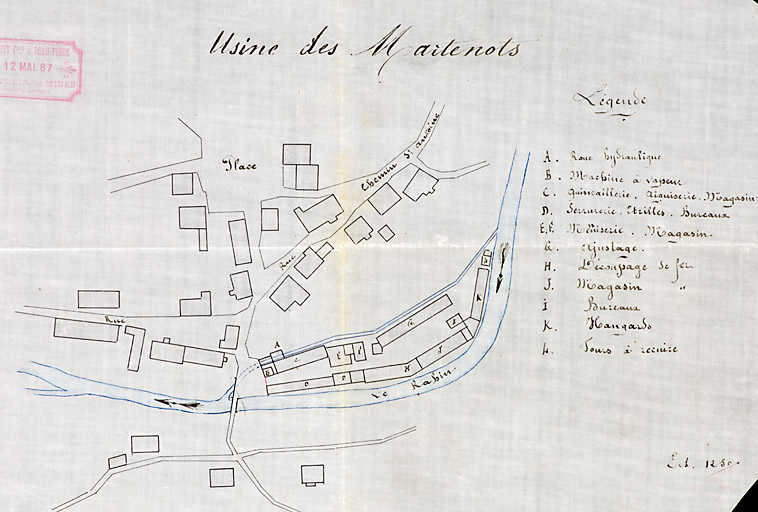 Usine des Martenots
12 MAI. 87
Légende
A. Roue hydraulique
B. Machine à vapeur
C. Quincaillerie, Aiguiserie, Magasin
D. Serrurerie, Etrilles, Bureaux
E.F. Menuiserie, Magasin.
G. Ajustage.
H. Découpage de fer
J. Magasin "
I Bureaux
K. Hangards
L. Fours à recuire
Place
Chemin St Antoine
Rue
Rue
A
B
C
E
F
G
K
D
H
J
Le Rabin